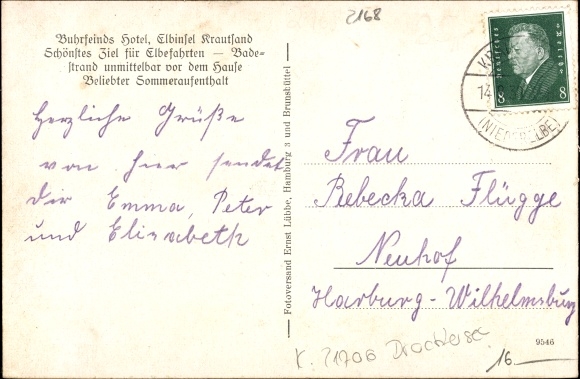 2168
Buhrfeinds Hotel, Elbinsel Krautsand
Schönstes Ziel für Elbefahrten — Bade-
strand unmittelbar vor dem Hause
Beliebter Sommeraufenthalt
Herzliche Grüße
von hier sendet
dir Emma, Peter
und Elisabeth
Fotoversand Ernst Lübbe, Hamburg 3 und Brunsbüttel
8 8
14.
(NIEDERELBE)
Frau
Rebecka Flügge
Neuhof
Harburg-Wilhelmsburg
9546
K. 21706
16